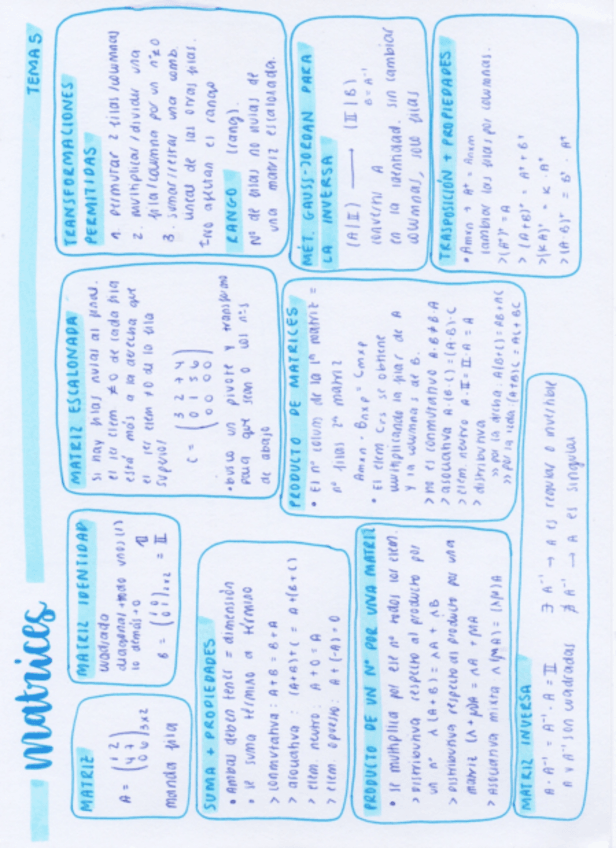 matrices
TEMA 5
MATRIZ
A = (1 2
4 7
0 6)3x2
manda fila
MATRIZ IDENTIDAD
cuadrada
diagonal todo unos (1)
lo demás → 0
B = (1 0
0 1)2x2 = II
MATRIZ ESCALONADA
si hay filas nulas al final.
el 1er elem ≠ 0 de cada fila
está más a la derecha que
el 1er elem ≠ 0 de la fila
C = (3 2 7 4
0 1 5 6
0 0 0 0)
• busco un pivote y transformo
para que sean 0 los nºs
de abajo
TRANSFORMACIONES
PERMITIDAS
1. permutar 2 filas/columnas
2. multiplicar/dividir una
fila/columna por un nº≠0
3. sumar/restar una comb.
lineal de las otras filas.
no afectan el rango
RANGO (rang).
Nº de filas no nulas de
una matriz escalonada.
SUMA + PROPIEDADES
• Ambas deben tener = dimensión
• se suma término a término
> conmutativa: A+B = B+A
> asociativa: (A+B)+C = A+(B+C)
> elem. neutro: A+0=A
> elem. opuesto: A+(-A)=0
PRODUCTO DE MATRICES
• El nº colum. de la 1ª matriz =
nº filas 2ª matriz
Amxn · Bnxp = Cmxp
• El elem Crs se obtiene
multiplicando la fila r de A
y la columna s de B.
> no es conmutativo A·B≠B·A
> asociativa A·(B·C)=(A·B)·C
> elem. neutro A·II=II·A=A
> distributiva
>> por la dcha: A(B+C)=AB+AC
>> por la izda (A+B)C=AC+BC
MÉT. GAUSS-JORDAN PARA
LA INVERSA
(A|II) ⟶ (II|B)
B = A⁻¹
convertir A
en la identidad. sin cambiar
columnas, solo filas
PRODUCTO DE UN Nº POR UNA MATRIZ
• se multiplica por ese nº todos los elem.
> Distributiva respecto al producto por
un nº λ(A+B) = λA + λB
> Distributiva respecto al producto por una
matriz (λ+μ)A = λA + μA
> Asociativa mixta λ(μA) = (λμ)A
TRASPOSICIÓN + PROPIEDADES
• Amxn → Aᵗ = Anxm
cambiar las filas por columnas.
> (Aᵗ)ᵗ = A
> (A+B)ᵗ = Aᵗ + Bᵗ
> (KA)ᵗ = K · Aᵗ
> (A·B)ᵗ = Bᵗ · Aᵗ
MATRIZ INVERSA
A · A⁻¹ = A⁻¹ · A = II ∃ A⁻¹ → A es regular o invertible
A y A⁻¹ son cuadradas ∄ A⁻¹ → A es singular